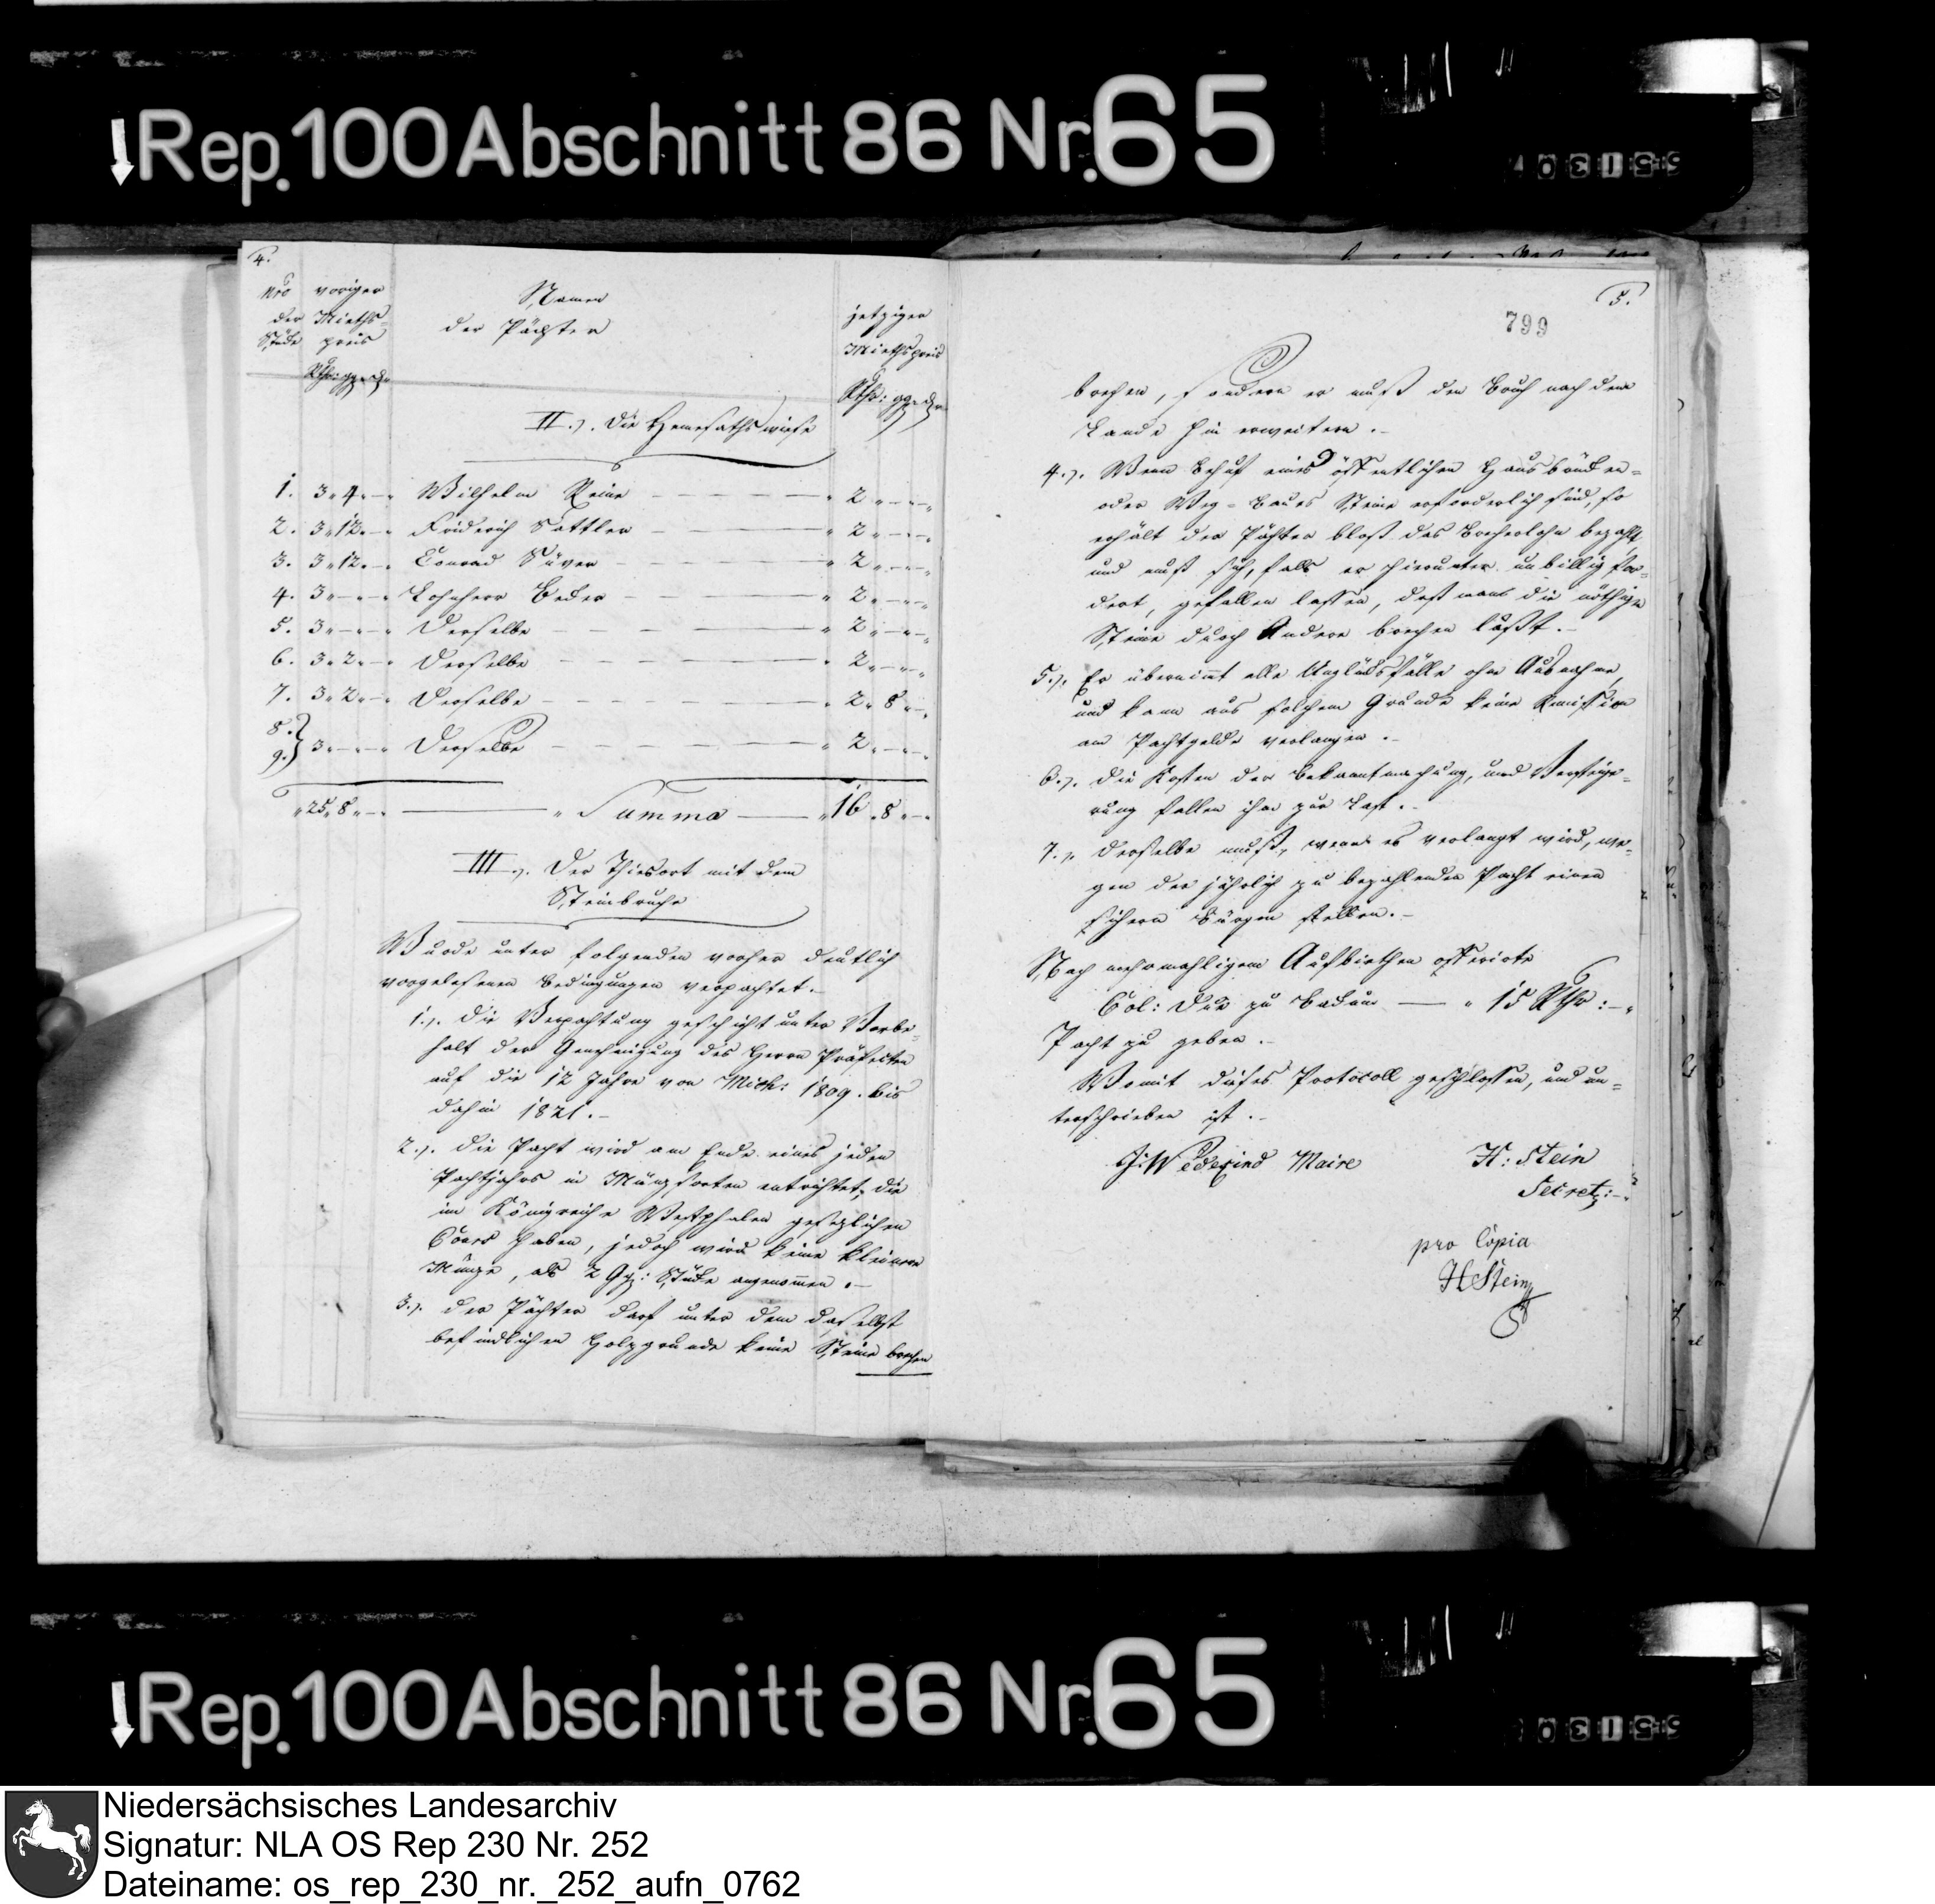 ↓Rep.100 Abschnitt 86 Nr.65
4.
Nro voriger Namen jetziger
der Mieths- der Pächter Miethspreis
Stücke preis
Rthr: ggr. d. Rthr: ggr. d.
II.). Die Hemesathswiese
1. 3 " 4 " - " Wilhelm Reine - - - - " 2 " - " - "
2. 3 " 12 " - " Friderich Sattler - - - - " 2 " - " - "
3. 3 " 12 " - " Conrad Süver - - - - " 2 " - " - "
4. 3 " - " - " Lohnherr Beder - - - - " 2 " - " - "
5. 3 " - " - " Derselbe - - - - " 2 " - " - "
6. 3 " 2 " - " Derselbe - - - - " 2 " - " - "
7. 3 " 2 " - " Derselbe - - - - " 2 " 8 " - "
8.
9.} 3 " - " - " Derselbe - - - - " 2 " - " - "
" 25 " 8 " - " — " Summa — " 16 " 8 " - "
III.). Der Thiesort mit dem
Steinbruche
Wurde unter folgenden vorher deutlich
vorgelesenen Bedingungen verpachtet.-
1.). Die Verpachtung geschieht unter Vorbe-
halt der Genehmigung des Herrn Präfecten
auf die 12 Jahre von Mich: 1809. bis
dahin 1821.-
2.). Die Pacht wird am Ende eines jeden
Pachtjahrs in Münzsorten entrichtet, die
im Königreiche Westphalen gesezlichen
Cours haben, jedoch wird keine kleinere
Münze, als 2 Ggr: Stücke angenommen.-
3.). Der Pächter darf unter dem daselbst
befindlichen Holzgrunde keine Steine brechen
5.
799
brechen, sondern er muß den Bruch nach dem
Lande hin erweitern.-
4.). Wenn Behuf eines öffentlichen Haus brücken-
oder Weg-Baues Steine erforderlich sind, so
erhält der Pächter bloß das Brecherlohn bezahlt,
und muß sich, falls er hierunter unbillig for-
dert, gefallen lassen, daß man die nöthigen
Steine durch Andere brechen läßt.-
5.). Er übernimt alle Unglücksfälle ohne Ausnahme,
und kann aus solchem Grunde keine Remission
am Pachtgelde verlangen.-
6.). Die Kosten der Bekanntmachung, und Versteige-
rung fallen ihm zur Last.-
7.). Derselbe muß, wenn es verlangt wird, we-
gen der jährlich zu bezahlenden Pacht einen
sichern Bürgen stellen.-
Nach mehrmahligem Aufbiethen offerirte
Col: Due zu Badum — " 15 Rthr: - "
Pacht zu geben.-
Womit dieses Protocoll geschlossen, und un-
terschrieben ist.-
J. Wedekind Maire H: Stein
Secret:-
pro Copia
HStein
↓Rep.100 Abschnitt 86 Nr.65
Niedersächsisches Landesarchiv
Signatur: NLA OS Rep 230 Nr. 252
Dateiname: os_rep_230_nr._252_aufn_0762